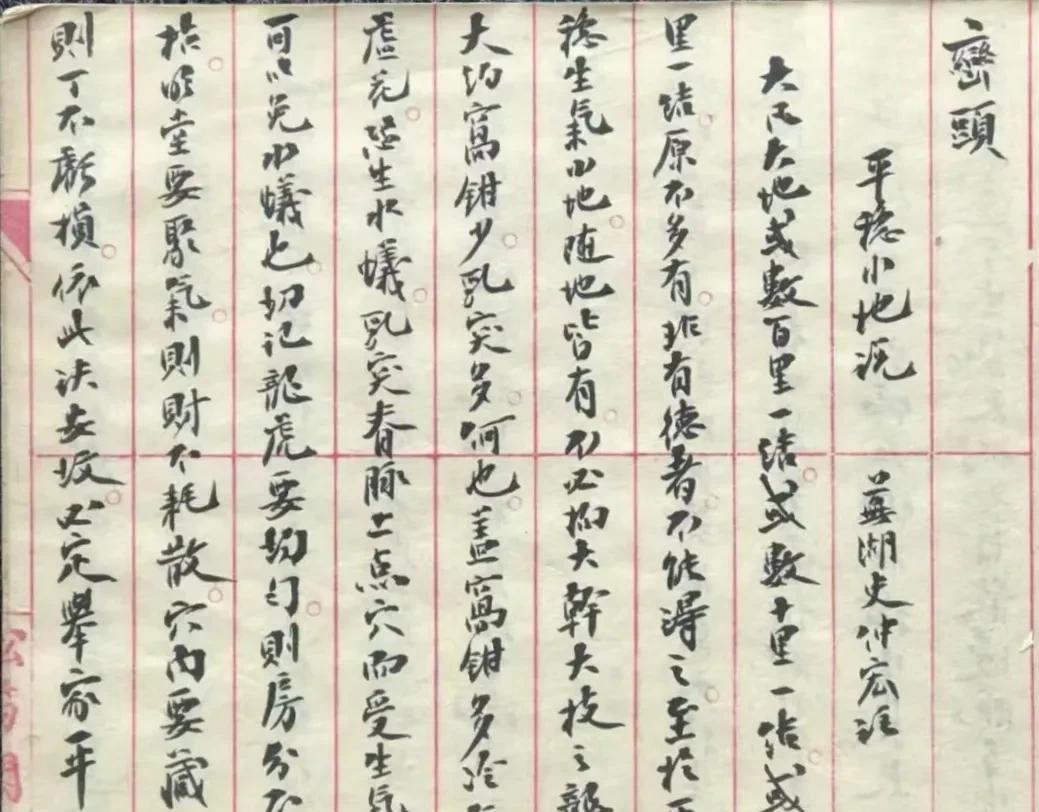 巒頭
平穩小地說 蕪湖史仲宏註
大凡大地或數百里一結或數十里一結或
里一結原不多有非有德者不能得之至於
穩生氣小地隨地皆有不必拘大幹大枝之
大約窩鉗少乳突多何也蓋窩鉗多冷
虛死恐生水蟻乳突脊脉上点穴而受生気
可以免水蟻也切記龍虎要均勻則房分不
枯明堂要聚気則財不耗散穴內要藏
則丁不虧損依此決安墳必定舉家平